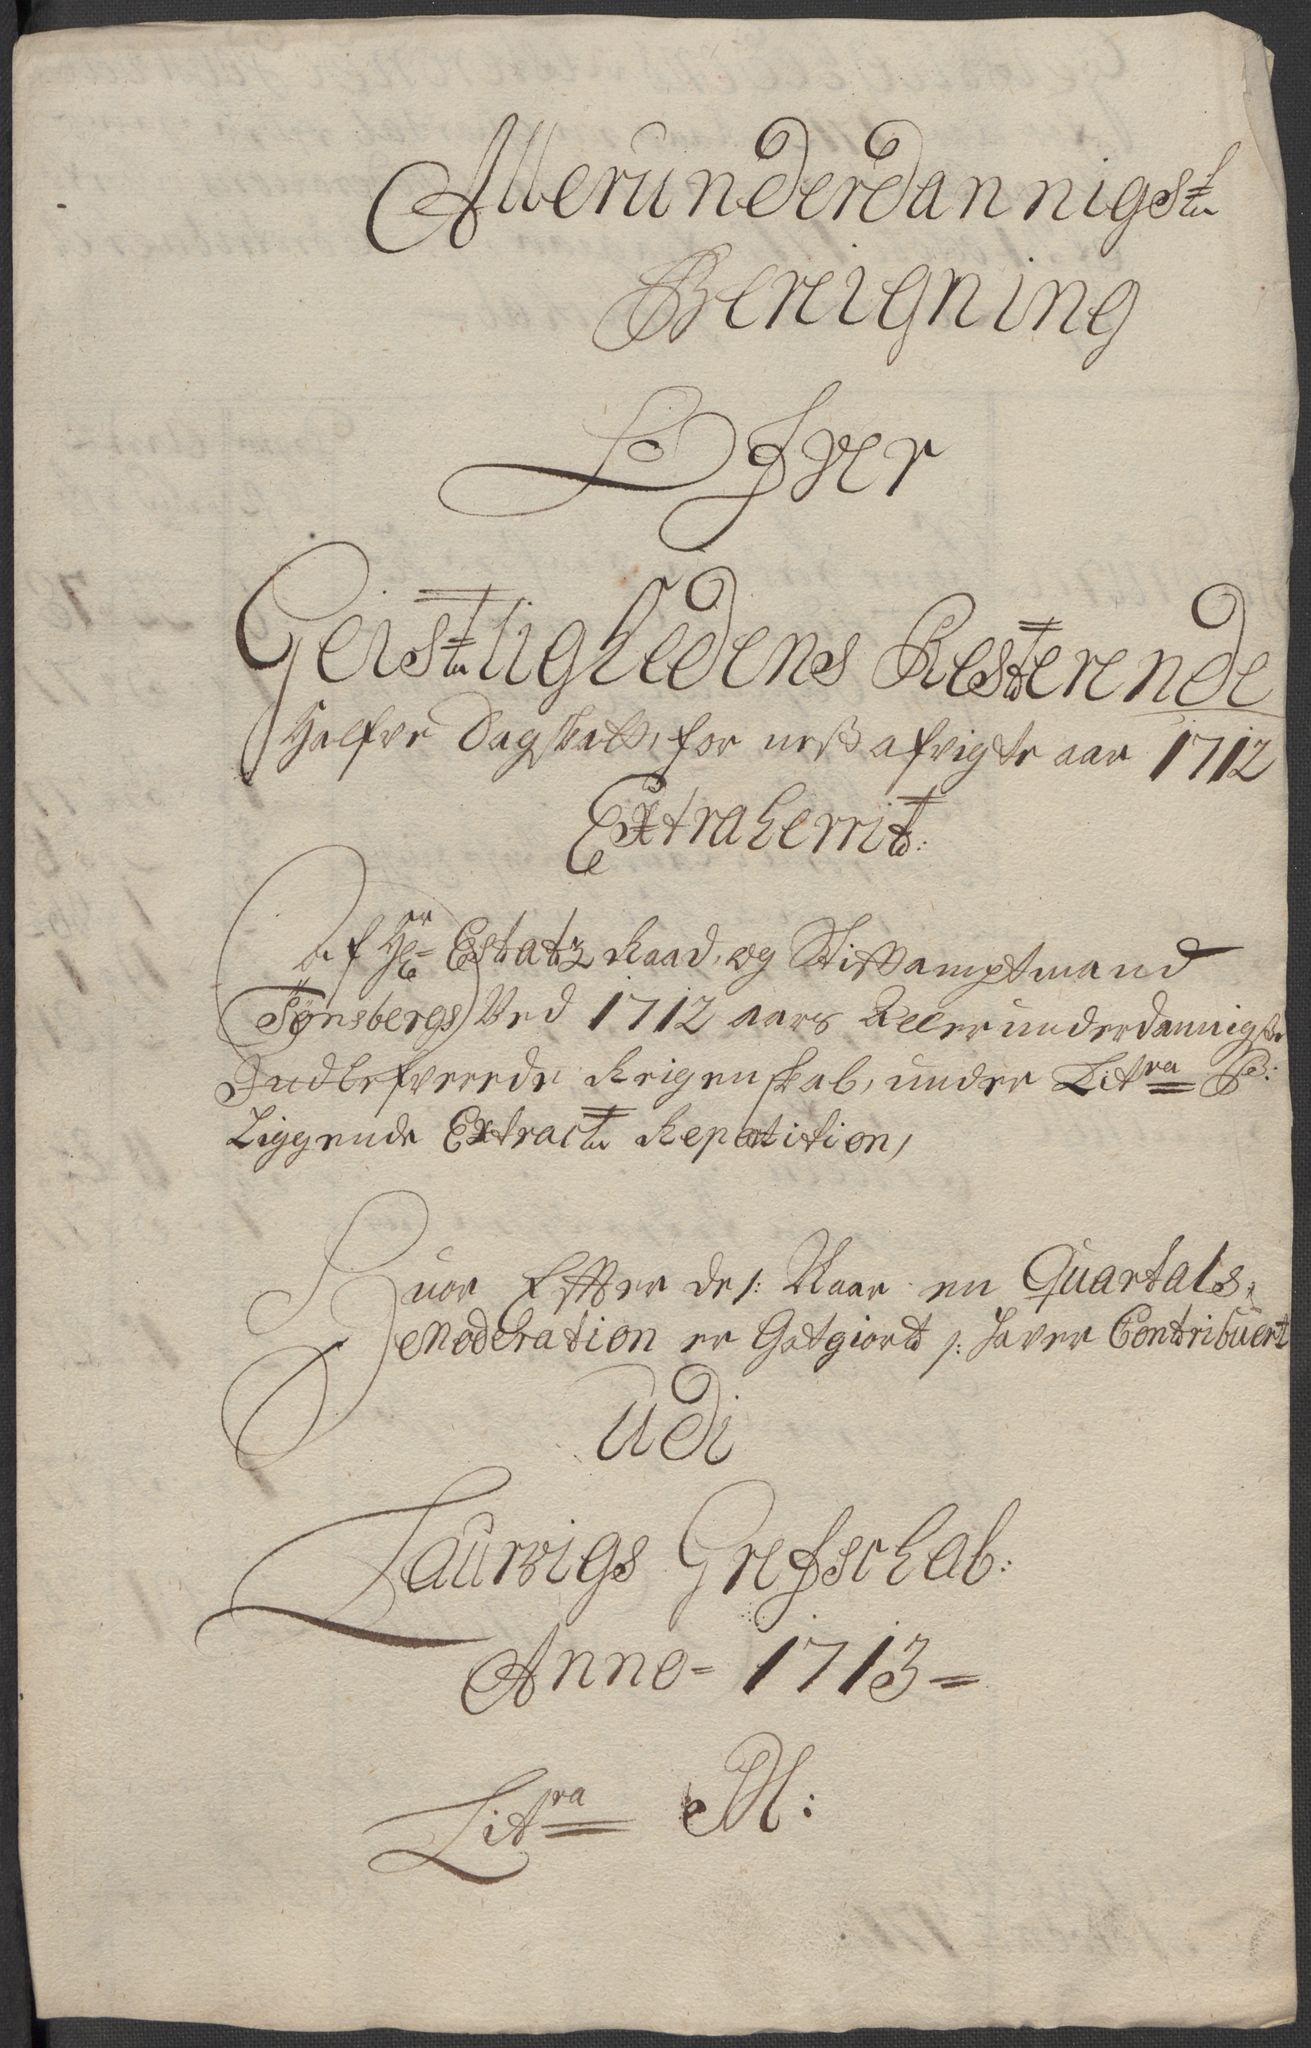 Allerunderdannigst
Bereigning
Ofver
Geistlighedens Resterende
Halfve Dagskatt, for nest afvigte aar 1712
Extraherrit:
Af Hr Estatz Raad, og Stiftamptmand
Tønsbergs Ved 1712 aars Allerunderdannigst
Indlefverede Reigenskab, under Litra
Liggende Extract Repatition,
Huor Effter de /: Naar en Quartals
Moderation er Gotgiort /: haver Contribuert
Udi
Laurwigs Grefschab:
Anno= 1713=
Litra M: